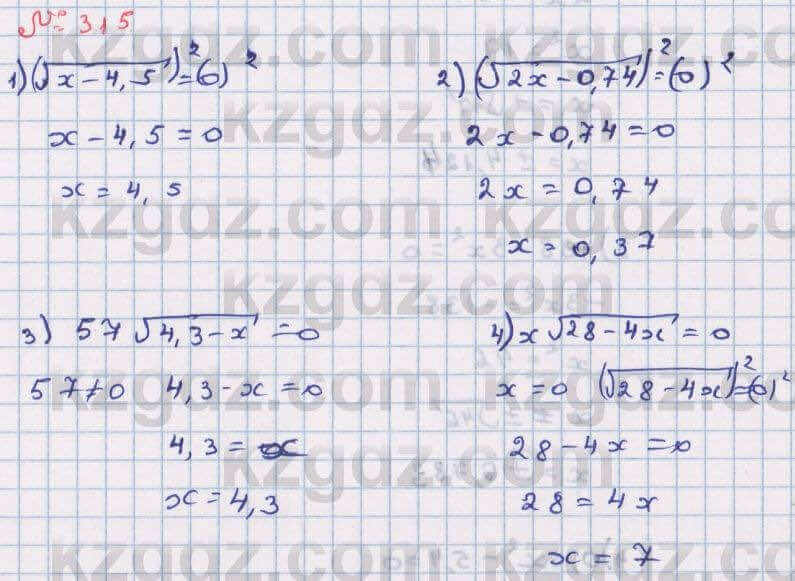 № 315
1) (√x - 4,5)² = (0)²
x - 4,5 = 0
x = 4,5
2) (√2x - 0,74)² = (0)²
2x - 0,74 = 0
2x = 0,74
x = 0,37
3) 57 √4,3 - x = 0
57 ≠ 0 4,3 - x = 0
4,3 = x
x = 4,3
4) x √28 - 4x = 0
x = 0 (√28 - 4x)² = (0)²
28 - 4x = 0
28 = 4x
x = 7
kzgdz.com